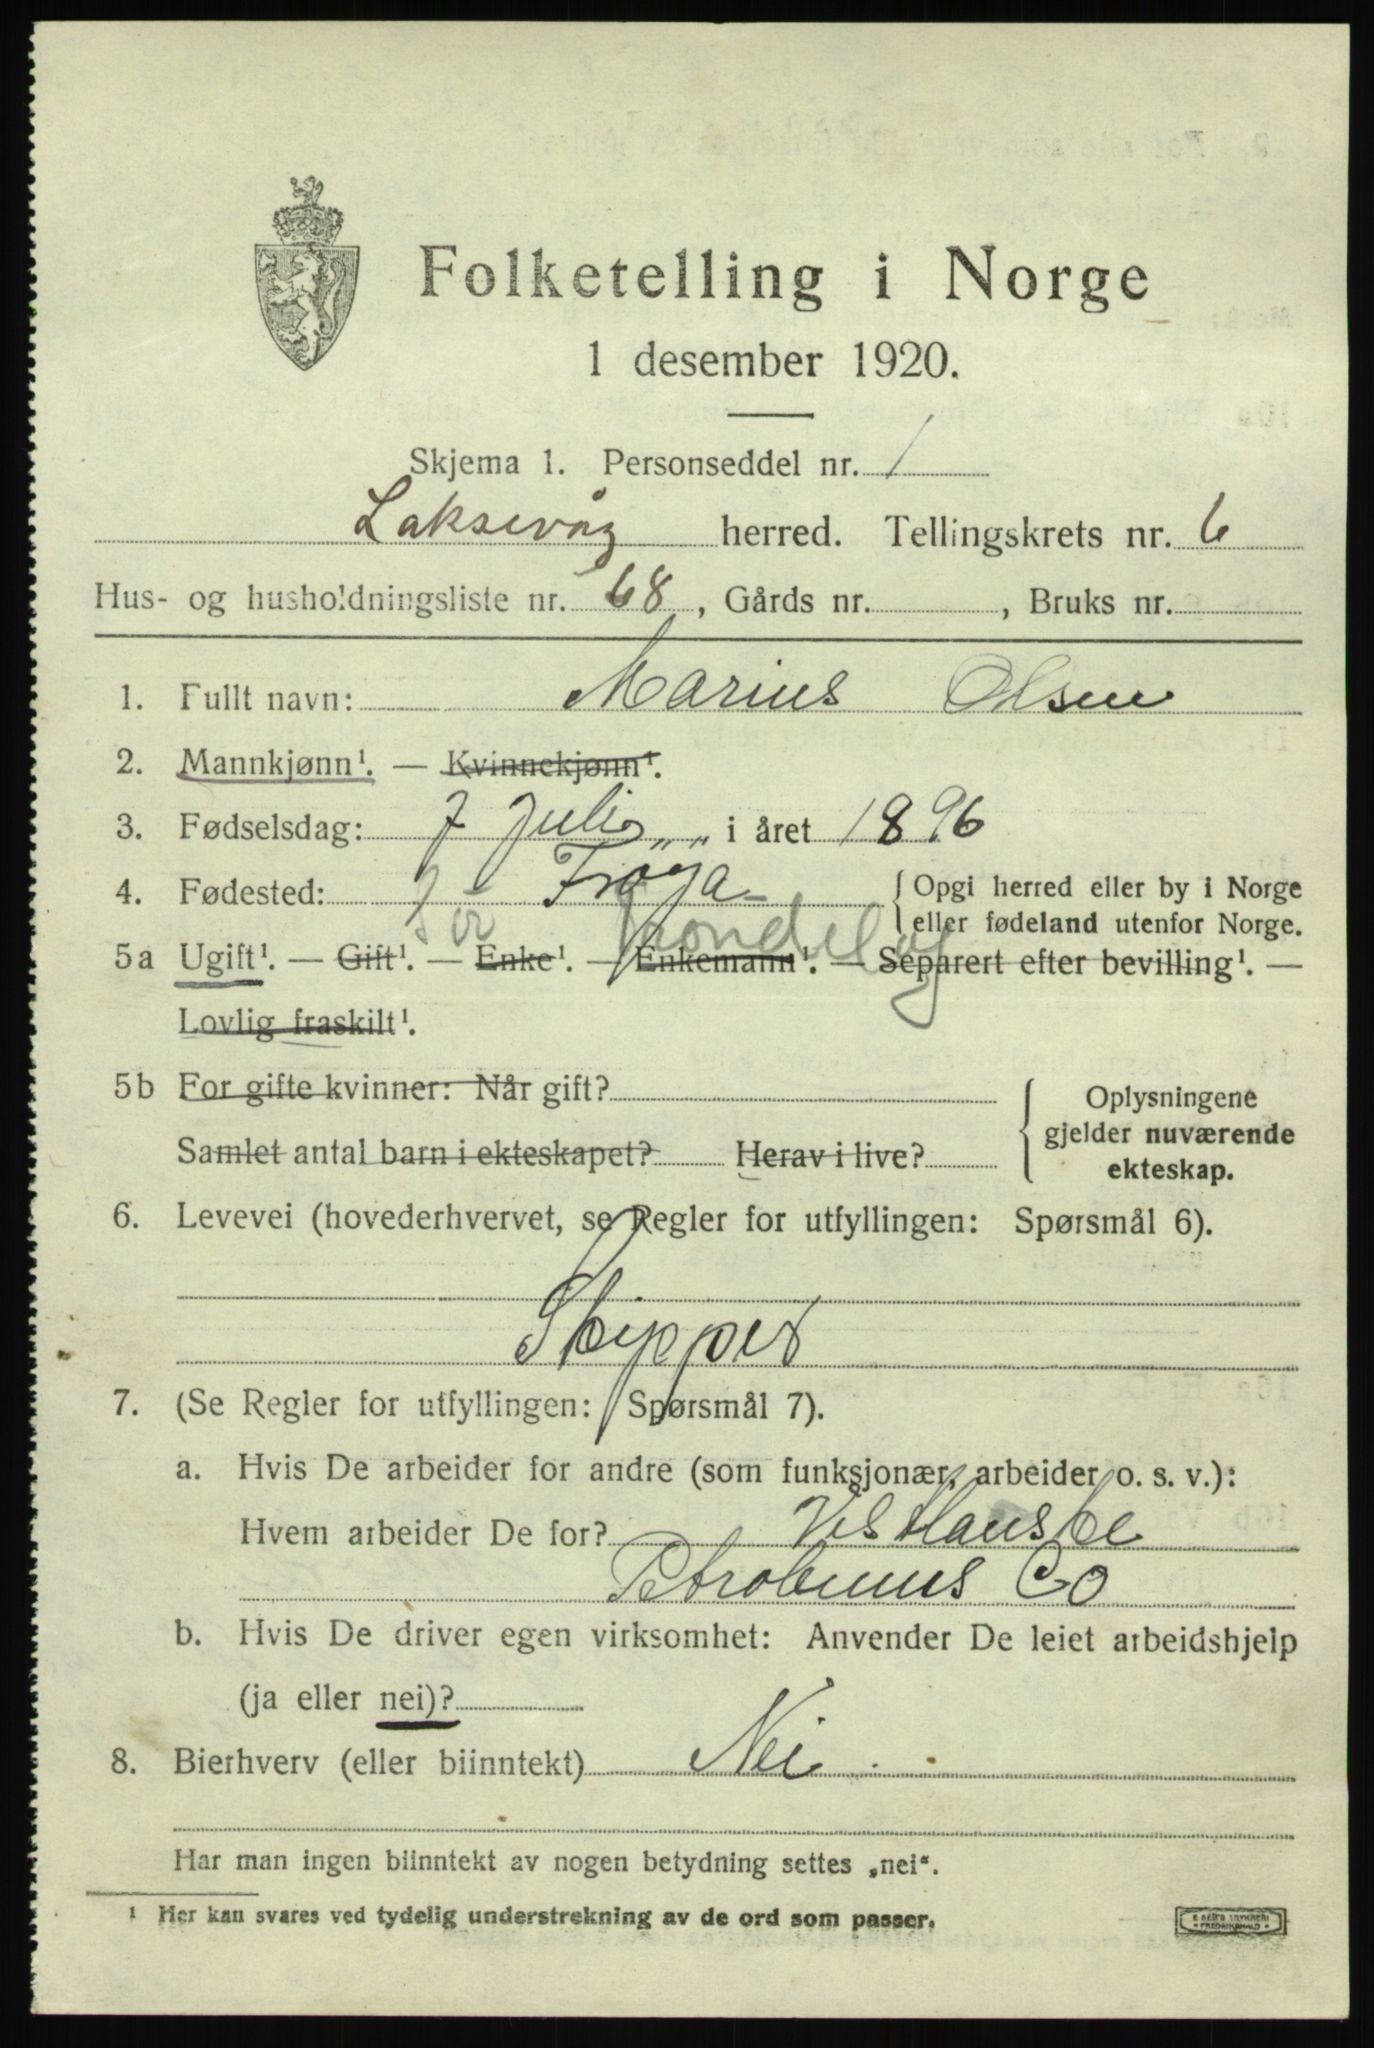 Folketelling i Norge
1 desember 1920.
Skjema 1. Personseddel nr. 1
Laksevåg herred. Tellingskrets nr. 6
Hus- og husholdningsliste nr. 68, Gårds nr. , Bruks nr.
1. Fullt navn: Marius Olsen
2. Mannkjønn¹. — Kvinnekjønn¹.
3. Fødselsdag: 7 Juli „ „ i året 1896
4. Fødested: Frøya { Opgi herred eller by i Norge
eller fødeland utenfor Norge.
Sør Trondelag
5a Ugift¹. — Gift¹. — Enke¹. — Enkemann¹. — Separert efter bevilling¹. —
Lovlig fraskilt¹.
5b For gifte kvinner: Når gift?
Samlet antal barn i ekteskapet? Herav i live?
Oplysningene
gjelder nuværende
ekteskap.
6. Levevei (hovederhvervet, se Regler for utfyllingen: Spørsmål 6).
Skipper
7. (Se Regler for utfyllingen: Spørsmål 7).
a. Hvis De arbeider for andre (som funksjonær, arbeider o. s. v.):
Hvem arbeider De for? Vestlanske
Petroleums Co
b. Hvis De driver egen virksomhet: Anvender De leiet arbeidshjelp
(ja eller nei)?
8. Bierhverv (eller biinntekt) Nei.
Har man ingen biinntekt av nogen betydning settes „nei“.
¹ Her kan svares ved tydelig understrekning av de ord som passer.